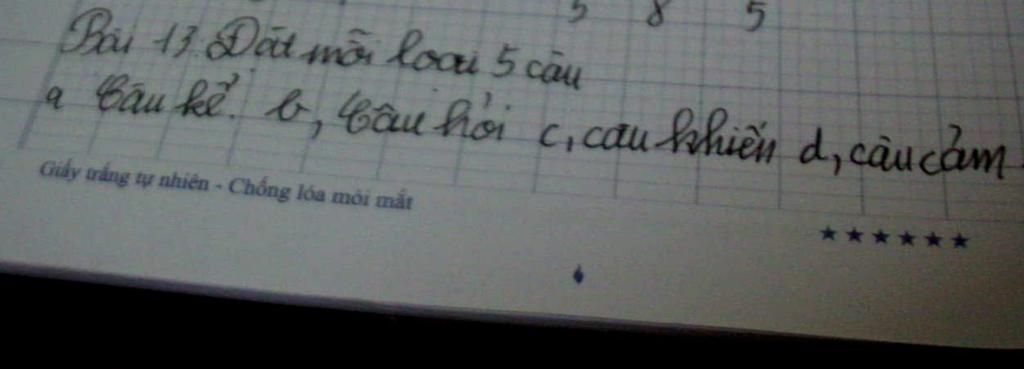 5 8 5
Bài 13. Đặt mỗi loại 5 câu
a Câu kể. b, Câu hỏi c, câu khiến d, câu cảm
Giấy trắng tự nhiên - Chống lóa mỏi mắt
★★★★★★